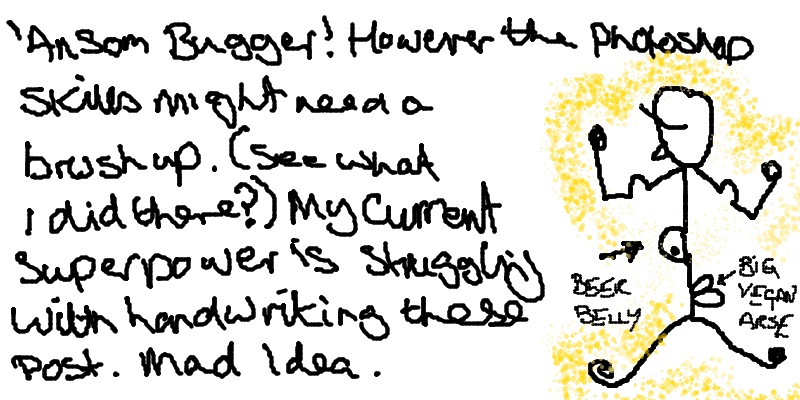 'Ansom Bugger! However the photoshop
skills might need a
brush up. (See what
I did there?) My Current
Superpower is struggling
with handwriting these
post. Mad idea.
BEER
BELLY
BIG
VEGAN
ARSE